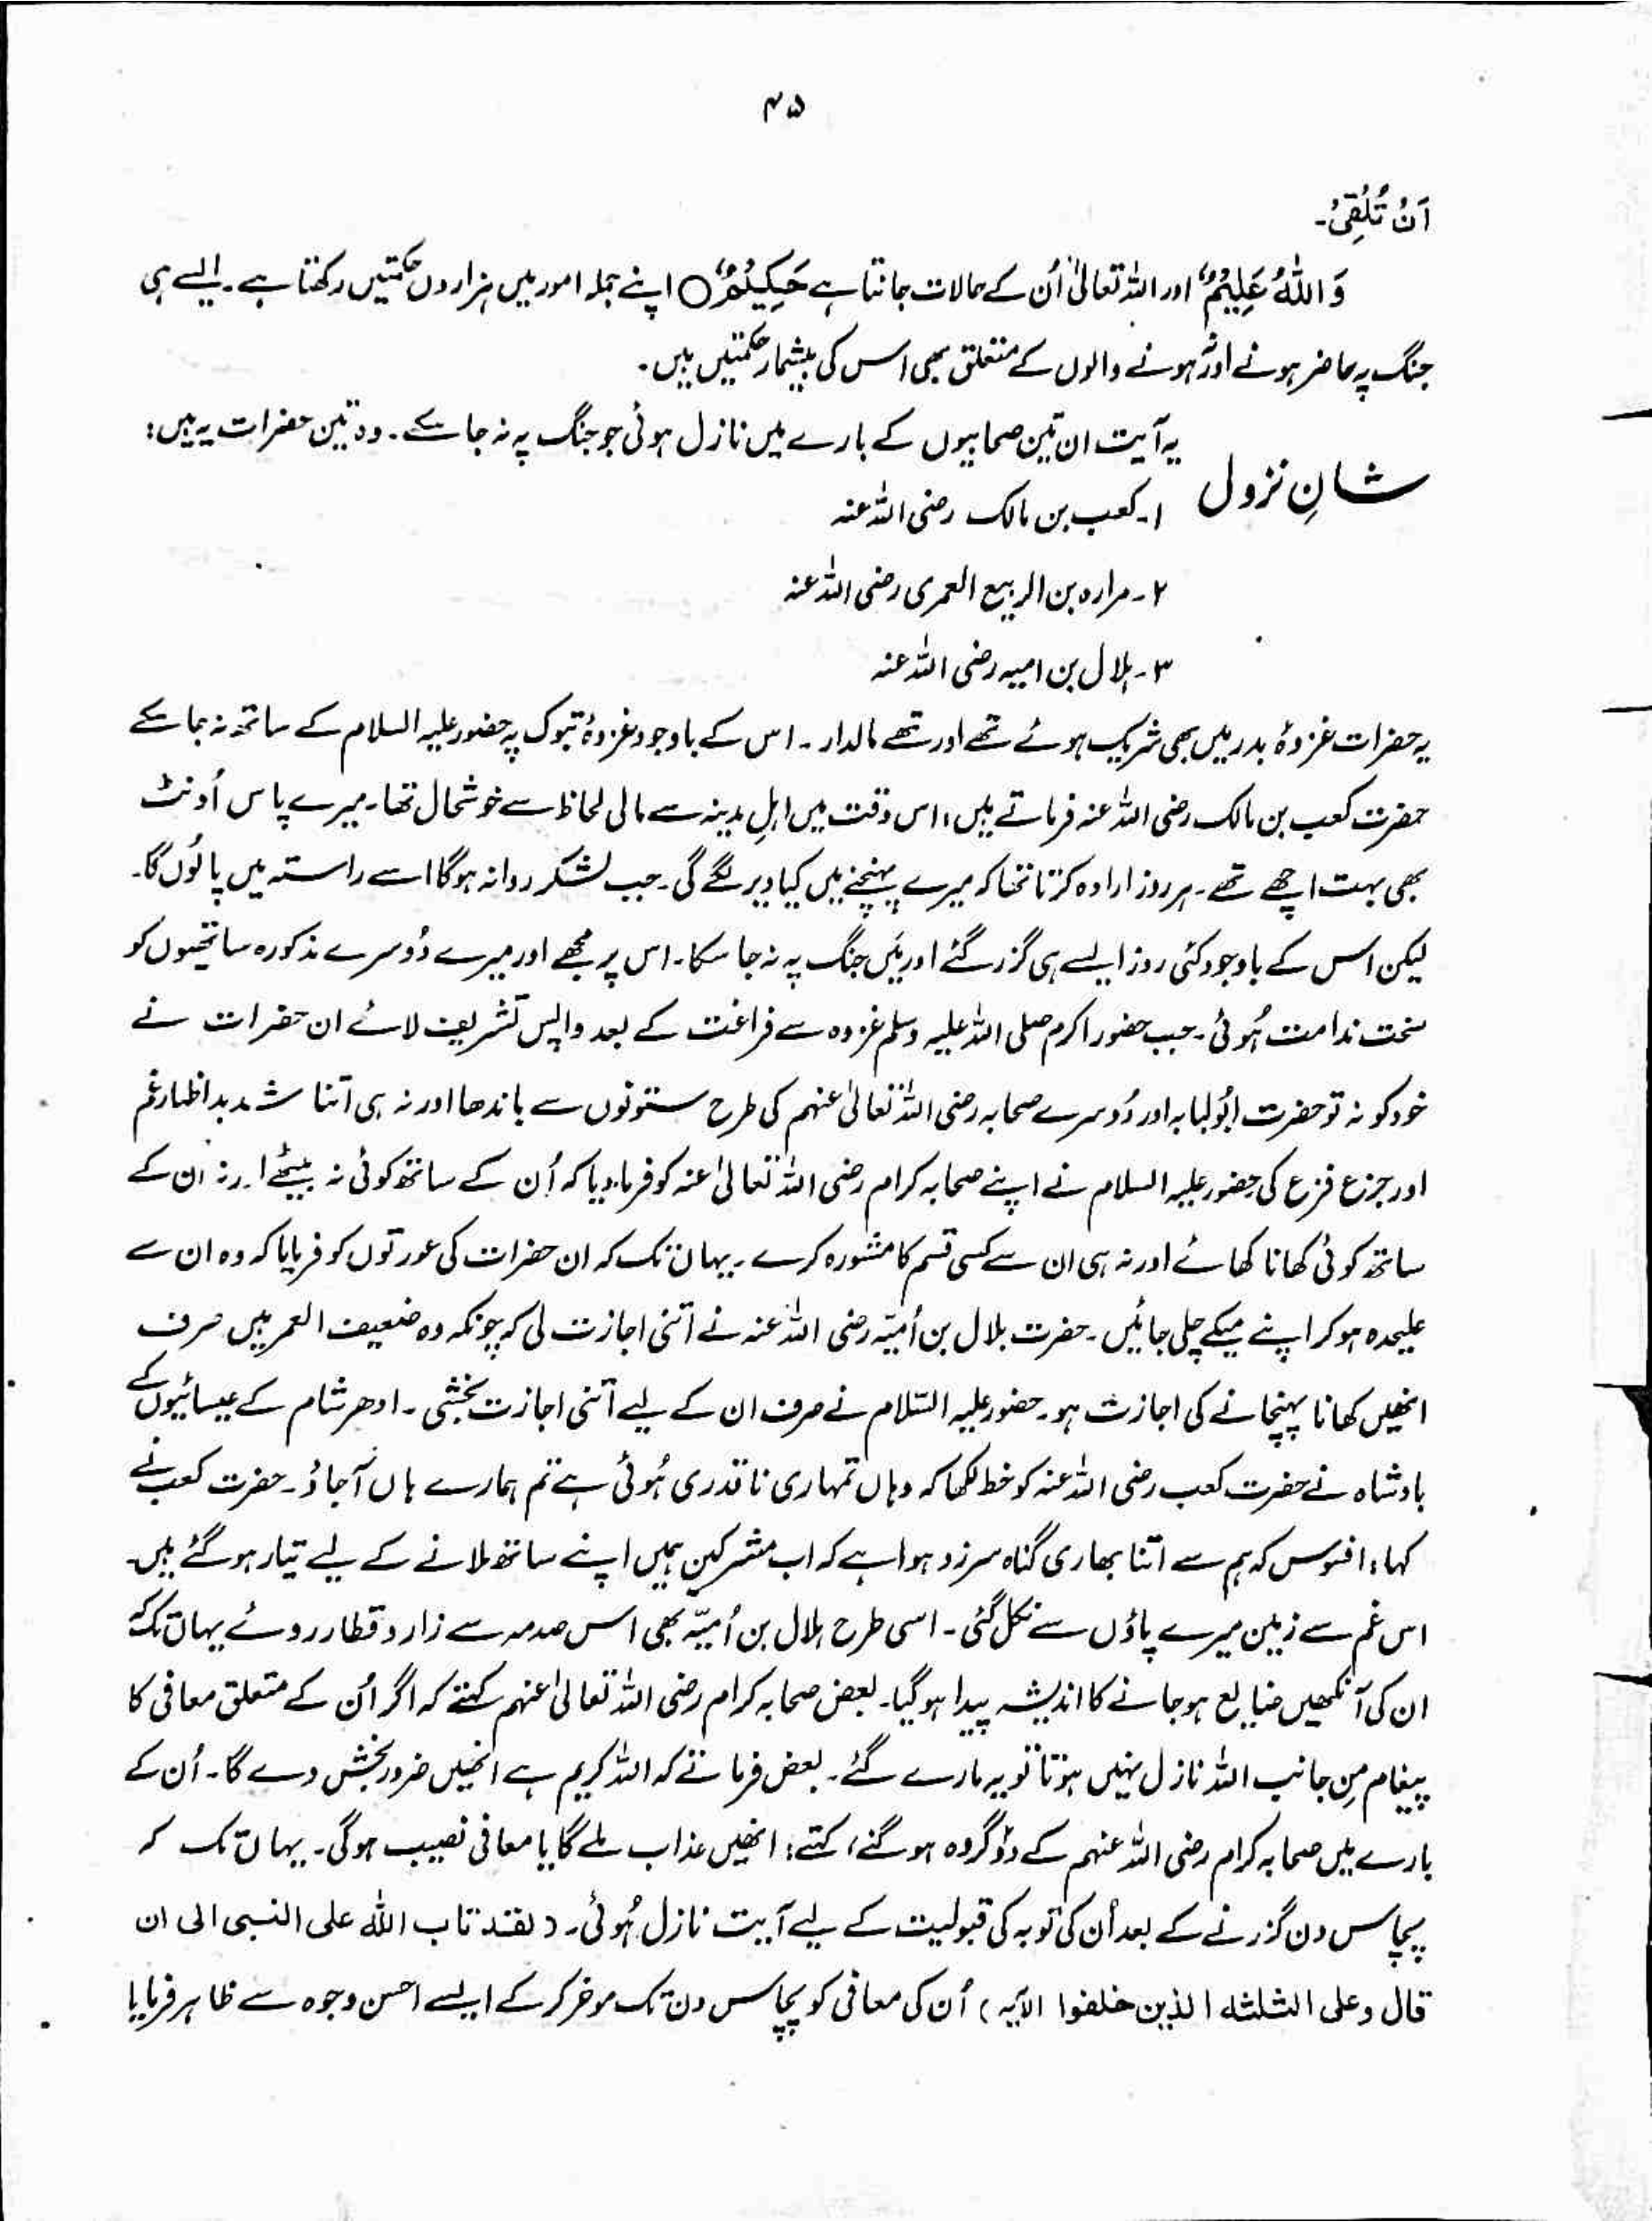 ۴۵
اَنْ تُلْقِیْ۔
وَ اللّٰهُ عَلِیْمٌ اور اللہ تعالیٰ اُن کے حالات جانتا ہے حَکِیْمٌ ○ اپنے جملہ امور میں ہزاروں حکمتیں رکھتا ہے۔ ایسے ہی
جنگ پہ حاضر ہونے اور نہ ہونے والوں کے متعلق بھی اس کی بیشمار حکمتیں ہیں۔
یہ آیت ان تین صحابیوں کے بارے میں نازل ہوئی جو جنگ پہ نہ جا سکے۔ وہ تین حضرات یہ ہیں:
شانِ نزول
۱۔ کعب بن مالک رضی اللہ عنہ
۲۔ مرارہ بن الربیع العمری رضی اللہ عنہ
۳۔ ہلال بن امیہ رضی اللہ عنہ
یہ حضرات غزوۂ بدر میں بھی شریک ہوئے تھے اور تھے مالدار۔ اس کے باوجود غزوۂ تبوک پہ حضور علیہ السلام کے ساتھ نہ جا سکے
حضرت کعب بن مالک رضی اللہ عنہ فرماتے ہیں، اس وقت میں اہلِ مدینہ سے مالی لحاظ سے خوشحال تھا۔ میرے پاس اُونٹ
بھی بہت اچھے تھے۔ ہر روز ارادہ کرتا تھا کہ میرے پہنچنے میں کیا دیر لگے گی۔ جب لشکر روانہ ہوگا اسے راستہ میں پالوں گا۔
لیکن اس کے باوجود کئی روز ایسے ہی گزر گئے اور میَں جنگ پہ نہ جا سکا۔ اس پر مجھے اور میرے دُوسرے مذکورہ ساتھیوں کو
سخت ندامت ہُوئی۔ جب حضور اکرم صلی اللہ علیہ وسلم غزوہ سے فراغت کے بعد واپس تشریف لائے ان حضرات نے
خود کو نہ تو حضرت ابُولبابہ اور دُوسرے صحابہ رضی اللہ تعالیٰ عنہم کی طرح ستونوں سے باندھا اور نہ ہی اتنا شدید اظہارِ غم
اور جزع فزع کی۔ حضور علیہ السلام نے اپنے صحابہ کرام رضی اللہ تعالیٰ عنہ کو فرما دیا کہ اُن کے ساتھ کوئی نہ بیٹھے اور نہ ان کے
ساتھ کوئی کھانا کھائے اور نہ ہی ان سے کسی قسم کا مشورہ کرے۔ یہاں تک کہ ان حضرات کی عورتوں کو فرمایا کہ وہ ان سے
علیحدہ ہوکر اپنے میکے چلی جائیں۔ حضرت ہلال بن اُمیّہ رضی اللہ عنہ نے اتنی اجازت لی کہ چونکہ وہ ضعیف العمر ہیں صرف
انھیں کھانا پہنچانے کی اجازت ہو۔ حضور علیہ السّلام نے صرف ان کے لیے اتنی اجازت بخشی۔ ادھر شام کے عیسائیوں کے
بادشاہ نے حضرت کعب رضی اللہ عنہ کو خط لکھا کہ وہاں تمہاری ناقدری ہُوئی ہے تم ہمارے ہاں آجاؤ۔ حضرت کعب نے
کہا، افسوس کہ ہم سے اتنا بھاری گناہ سرزد ہوا ہے کہ اب مشرکین ہمیں اپنے ساتھ ملانے کے لیے تیار ہو گئے ہیں۔
اس غم سے زمین میرے پاؤں سے نکل گئی۔ اسی طرح ہلال بن اُمیّہ بھی اس صدمہ سے زار و قطار روئے یہاں تک کہ
ان کی آنکھیں ضایع ہو جانے کا اندیشہ پیدا ہو گیا۔ بعض صحابہ کرام رضی اللہ تعالیٰ عنہم کہتے کہ اگر اُن کے متعلق معافی کا
پیغام مِن جانب اللہ نازل نہیں ہوتا تو یہ مارے گئے۔ بعض فرماتے کہ اللہ کریم ہے انھیں ضرور بخش دے گا۔ اُن کے
بارے میں صحابہ کرام رضی اللہ عنہم کے دو گروہ ہوگئے، کہتے: انھیں عذاب ملے گا یا معافی نصیب ہوگی۔ یہاں تک کہ
پچاس دن گزرنے کے بعد اُن کی توبہ کی قبولیت کے لیے آیت نازل ہُوئی۔ (لقد تاب اللہ علی النبی الی ان
قال وعلی الثلثہ الذین خلفوا الآیہ) اُن کی معافی کو پچاس دن تک موخر کر کے ایسے احسن وجوہ سے ظاہر فرمایا